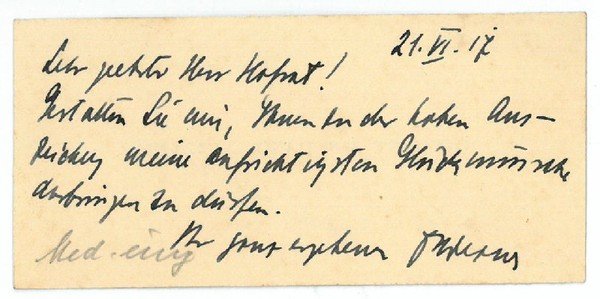 21. VI. 17
Sehr geehrter Herr Hofrat!
Gestatten Sie mir, Ihnen zu der hohen Aus-
zeichnung meine aufrichtigsten Glückwünsche
darbringen zu dürfen.
Ihr ganz ergebener